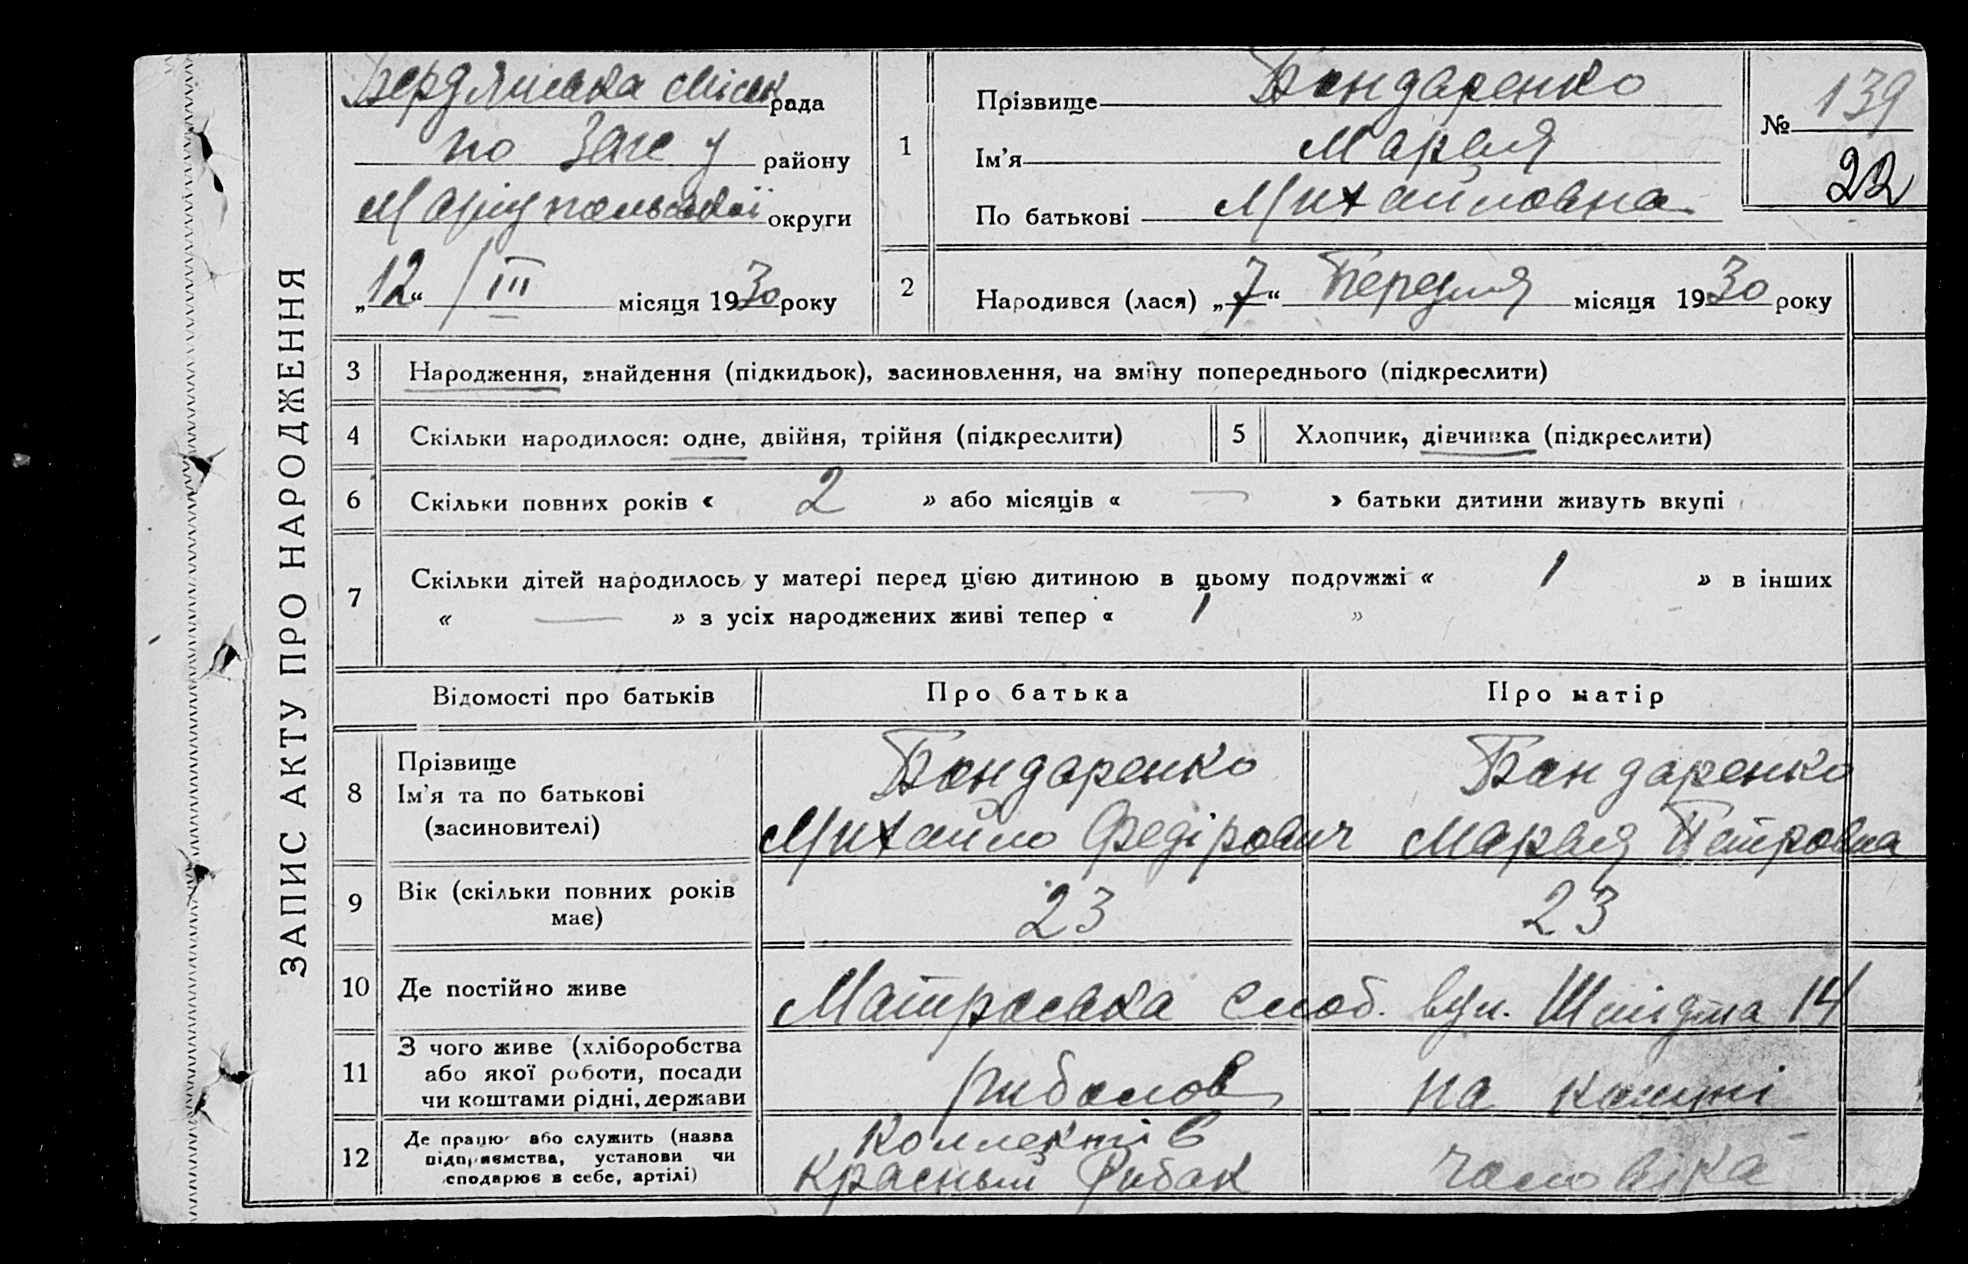 ЗАПИС АКТУ ПРО НАРОДЖЕННЯ
Бердянська міськ рада
по Загс у району
Маріупольської округи
„12“ / III місяця 1930 року
1
Прізвище Бондаренко
Ім’я Марья
По батькові Михайловна
№ 139
22
2
Народився (лася) „7“ Березня місяця 1930 року
3 Народження, знайдення (підкидьок), засиновлення, на зміну попереднього (підкреслити)
4 Скільки народилося: одне, двійня, трійня (підкреслити)
5 Хлопчик, дівчинка (підкреслити)
6 Скільки повних років « 2 » або місяців « — » батьки дитини живуть вкупі
7 Скільки дітей народилось у матері перед цією дитиною в цьому подружжі « 1 » в інших
« — » з усіх народжених живі тепер « 1 »
Відомості про батьків
Про батька
Про матір
8
Прізвище
Ім’я та по батькові
(засиновителі)
Бондаренко
Михайло Федірович
Бондаренко
Марья Петровна
9
Вік (скільки повних років
має)
23
23
10 Де постійно живе
Матроська Слоб. вул. Шмідта 14
11
З чого живе (хліборобства
або якої роботи, посади
чи коштами рідні, держави
риболов
на кошті
12
Де працює або служить (назва
підприємства, установи чи
сподарює в себе, артілі)
Коллектів
Красный Рибак
чоловіка